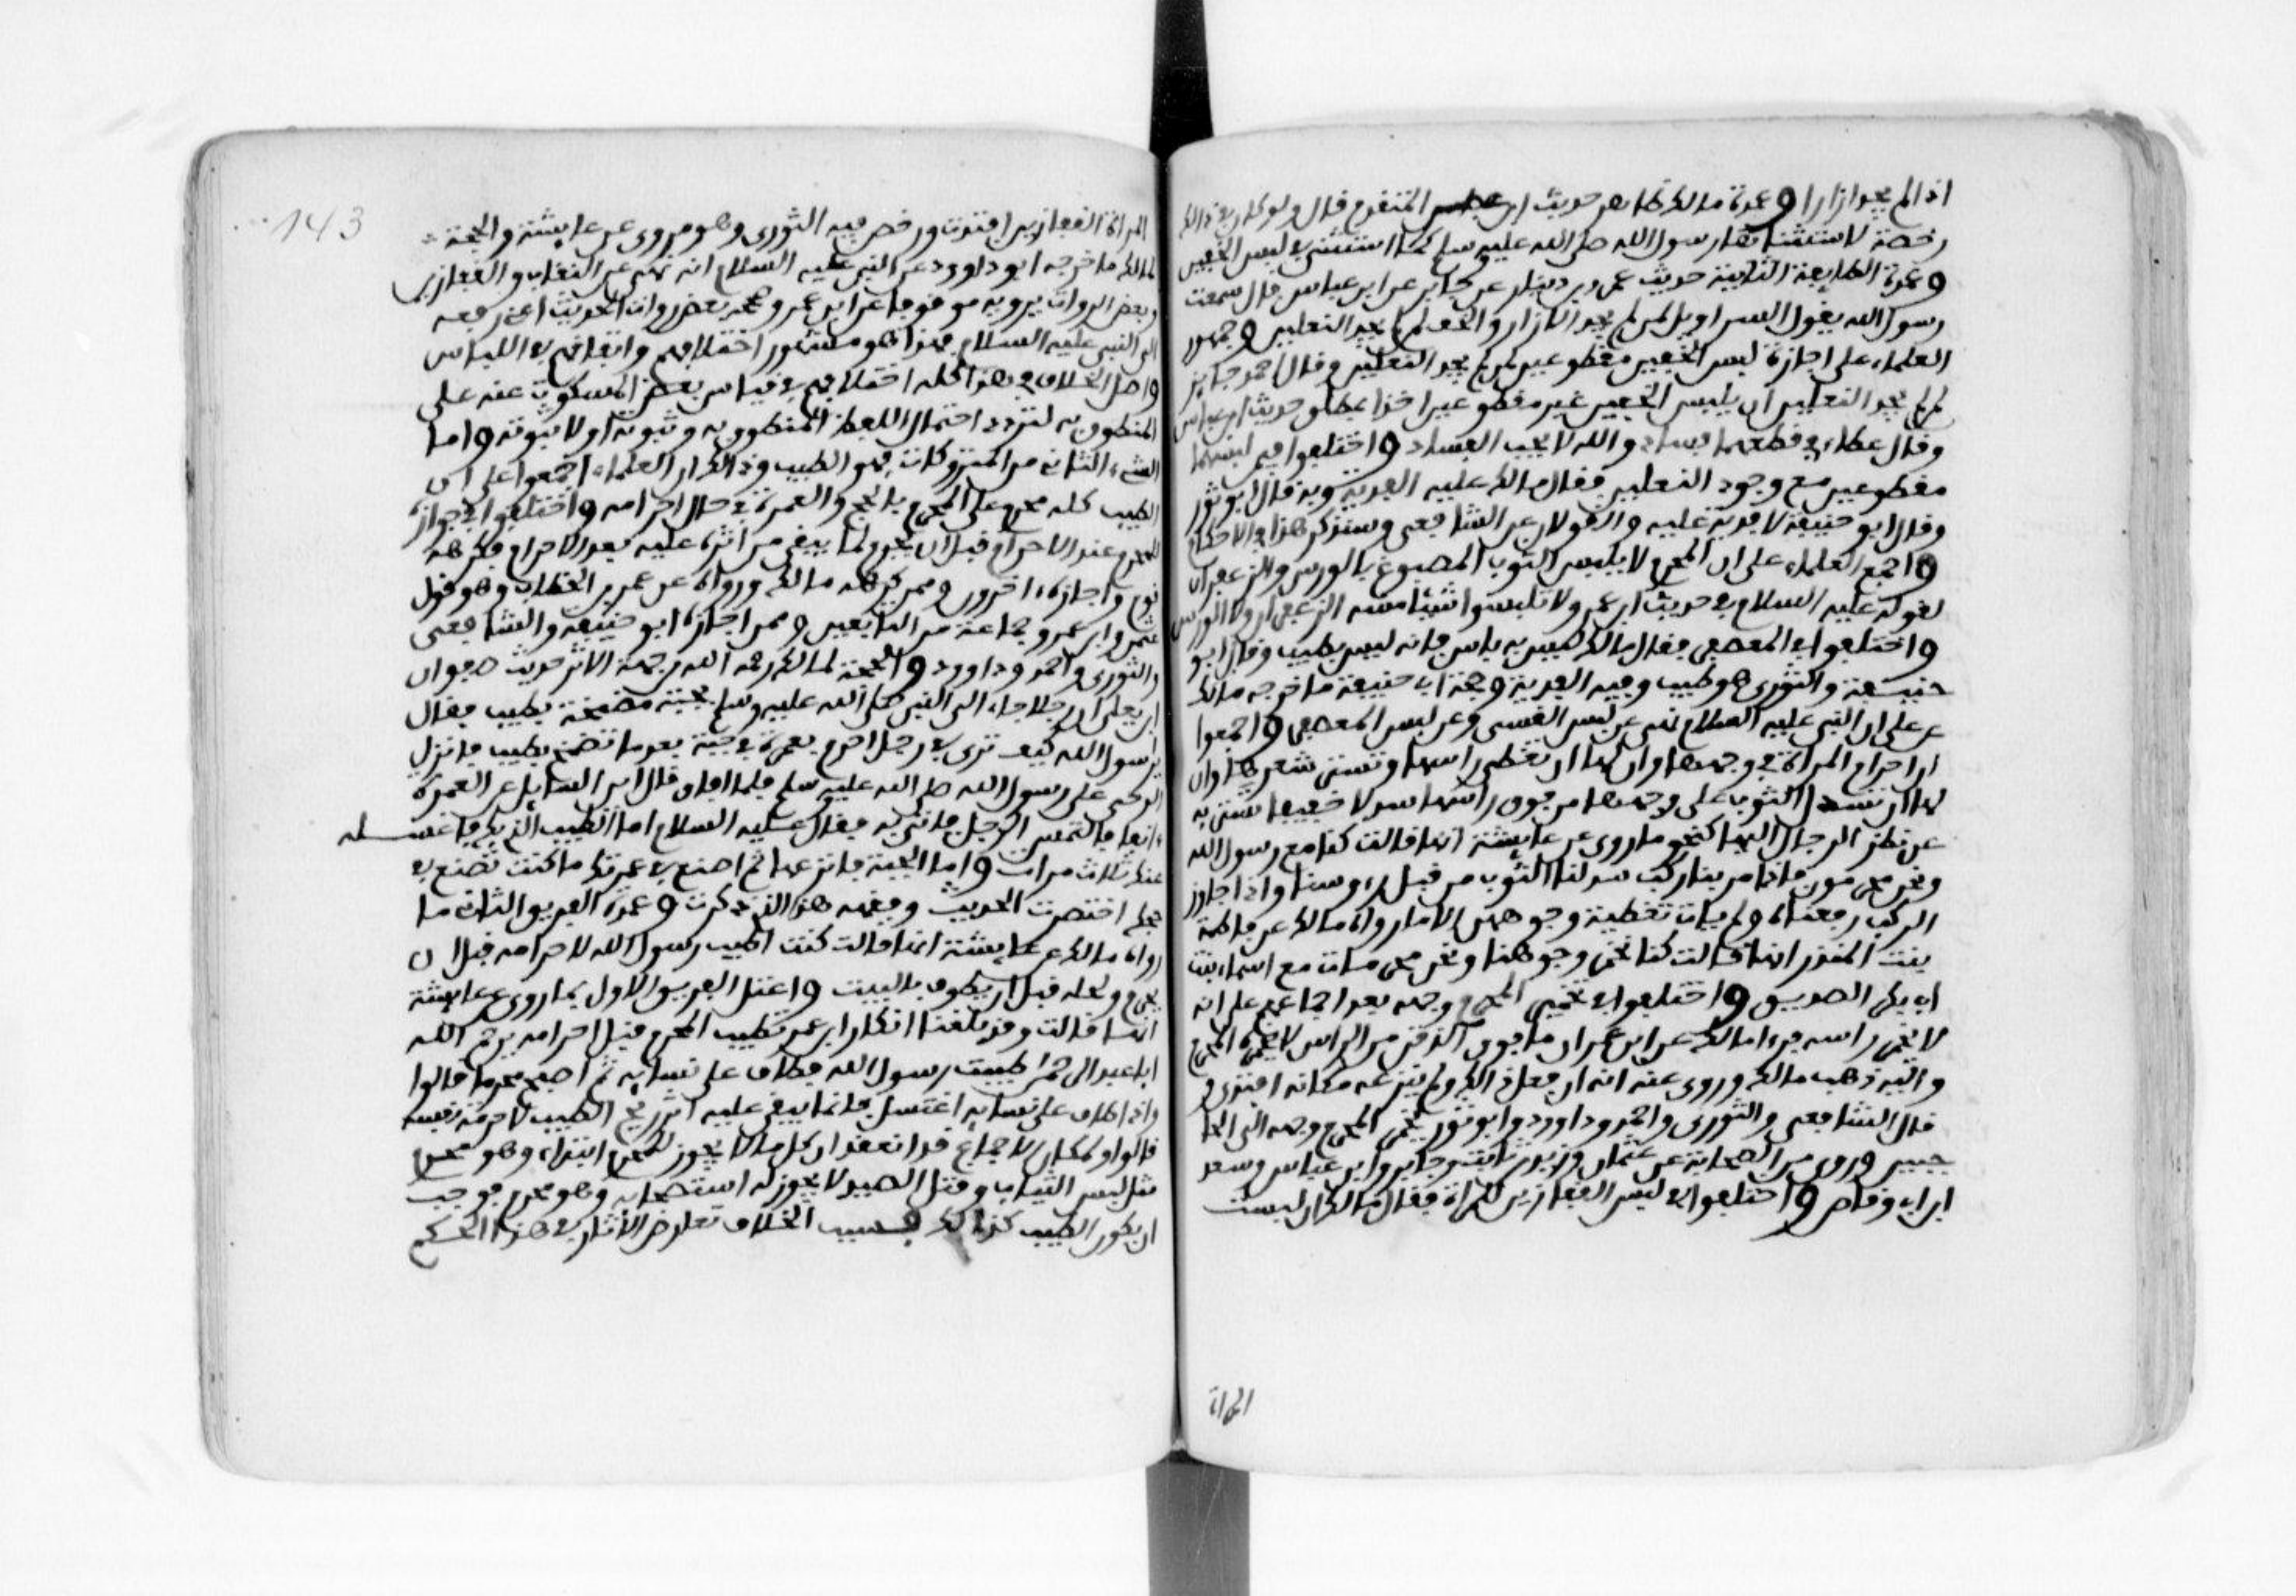 اذا لم يجد ازارا وعمدة مالك ظاهر حديث ابن عباس المتقدم قال ولو كان في ذلك
رخصة لاستثناها رسول الله صلى الله عليه وسلم كما استثنى في لبس الخفين
وعمدة الطايفة الثانية حديث عمرو بن دينار عن جابر عن ابن عباس قال سمعت
رسول الله يقول السراويل لمن لم يجد الازار والخف لمن لم يجد النعلين وجمهور
العلماء على اجازة لبس الخفين مقطوعين لمن لم يجد النعلين وقال احمد جايز
لمن لم يجد النعلين ان يلبس الخفين غير مقطوعين اخذا بمطلق حديث ابن عباس
وقال عطاء في قطعهما فساد والله لا يحب الفساد واختلفوا فيمن لبسهما
مقطوعين مع وجود النعلين فقال مالك عليه الفدية وبه قال ابو ثور
وقال ابو حنيفة لا فدية عليه والقولان عن الشافعي وسنذكر هذا في الاحكام
واجمع العلماء على ان المحرم لا يلبس الثوب المصبوغ بالورس والزعفران
لقوله عليه السلام في حديث ابن عمر ولا تلبسوا شيئا مسه الزعفران ولا الورس
واختلفوا في المعصفر فقال مالك ليس به باس فانه ليس بطيب وقال ابو
حنيفة والثوري هو طيب وفيه الفدية وحجة ابي حنيفة ما خرجه مالك
عن علي ان النبي عليه السلام نهى عن لبس القسي وعن لبس المعصفر واجمعوا
ان احرام المراة في وجهها وان لها ان تغطي راسها وتستر شعرها وان
لها ان تسدل الثوب على وجهها من فوق راسها سدلا خفيفا تستتر به
عن نظر الرجال اليها كنحو ما روي عن عايشة انها قالت كنا مع رسول الله
ونحن محرمون فاذا مر بنا ركب سدلنا الثوب من قبل رءوسنا واذا جاوز
الركب رفعناه ولم يات تغطية وجوههن الا ما رواه مالك عن فاطمة
بنت المنذر انها قالت كنا نخمر وجوهنا ونحن محرمات مع اسماء بنت
ابي بكر الصديق واختلفوا في تخمير المحرم وجهه بعد اجماعهم على انه
لا يخمر راسه فروى مالك عن ابن عمر ان ما فوق الذقن من الراس لا يخمره المحرم
واليه ذهب مالك وروي عنه انه ان فعل ذلك ولم ينزعه مكانه افتدى و
قال الشافعي والثوري واحمد وداوود وابو ثور يخمر المحرم وجهه الى الحا
جبين وروي من الصحابة عن عثمان وزيد بن ثابت وجابر وابن عباس وسعد
ابن ابي وقاص واختلفوا في لبس القفازين للمراة فقال مالك ان لبست
المراة
143
المراة القفازين افتدت ورخص فيه الثوري وهو مروي عن عايشة والحجة
لمالك ما خرجه ابو داوود عن النبي عليه السلام انه نهى عن النقاب والقفازين
وبعض الروات يرويه موقوفا عن ابن عمر وصححه بعض روات الحديث اعني رفعه
الى النبي عليه السلام فهذا هو مشهور اختلافهم واتفاقهم في اللباس
واصل الخلاف في هذا كله اختلافهم في قياس بعض المسكوت عنه على
المنطوق به لتردد احتمال اللفظ المنطوق به وثبوته او لا ثبوته واما
الشيء الثاني من المتروكات فهو الطيب وذلك ان العلماء اجمعوا على ان
الطيب كله محرم على المحرم بالحج والعمرة في حال احرامه واختلفوا في جوازه
للمحرم عند الاحرام قبل ان يحرم لما يبقى من اثره عليه بعد الاحرام فكرهه
قوم واجازه اخرون وممن كرهه مالك ورواه عن عمر بن الخطاب وهو قول
عثمن وابن عمر وجماعة من التابعين وممن اجازه ابو حنيفة والشافعي
والثوري واحمد وداوود والحجة لمالك رحمه الله من جهة الاثر حديث صفوان
ابن يعلى ان رجلا جاء الى النبي صلى الله عليه وسلم بجبة مضمخة بطيب فقال
يرسول الله كيف ترى في رجل احرم بعمرة في جبة بعد ما تضمخ بطيب فانزل
الوحي على رسول الله صلى الله عليه وسلم فلما افاق قال اين السايل عن العمرة
ءانفا فالتمس الرجل فاتي به فقال عليه السلام اما الطيب الذي بك فاغسله
عنك ثلاث مرات واما الجبة فانزعها ثم اصنع في عمرتك ما كنت تصنع في
حجك اختصرت الحديث وفقهه هذا الذي ذكرت وعمدة الفريق الثاني ما
رواه مالك عن عايشة انها قالت كنت اطيب رسول الله لاحرامه قبل ان
يحرم ولحله قبل ان يطوف بالبيت واعتل الفريق الاول بما روي عن عايشة
انها قالت وقد بلغنا انكار ابن عمر تطيب المحرم قبل احرامه يرحم الله
ابا عبد الرحمن طيبت رسول الله فطاف على نسايه ثم اصبح محرما قالوا
واذا طاف على نسايه اغتسل فانما يبقى عليه اثر ريح الطيب لا جرمه نفسه
قالوا ولما كان الاجماع قد انعقد ان كل ما لا يجوز للمحرم ابتداء وهو محرم
مثل لبس الثياب وقتل الصيد لا يجوز له استصحابه وهو محرم فوجب
ان يكون الطيب كذلك فسبب الخلاف تعارض الاثار في هذا الحكم